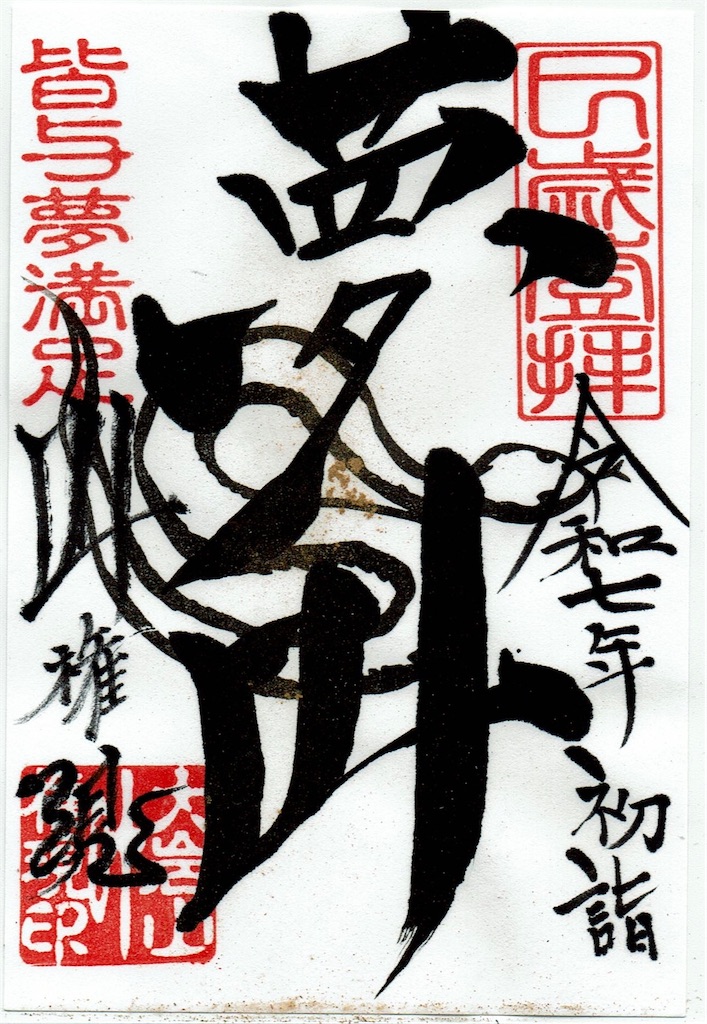 巳歳登拝
令和七年 初詣
夢叶
皆与夢満足
叶権現